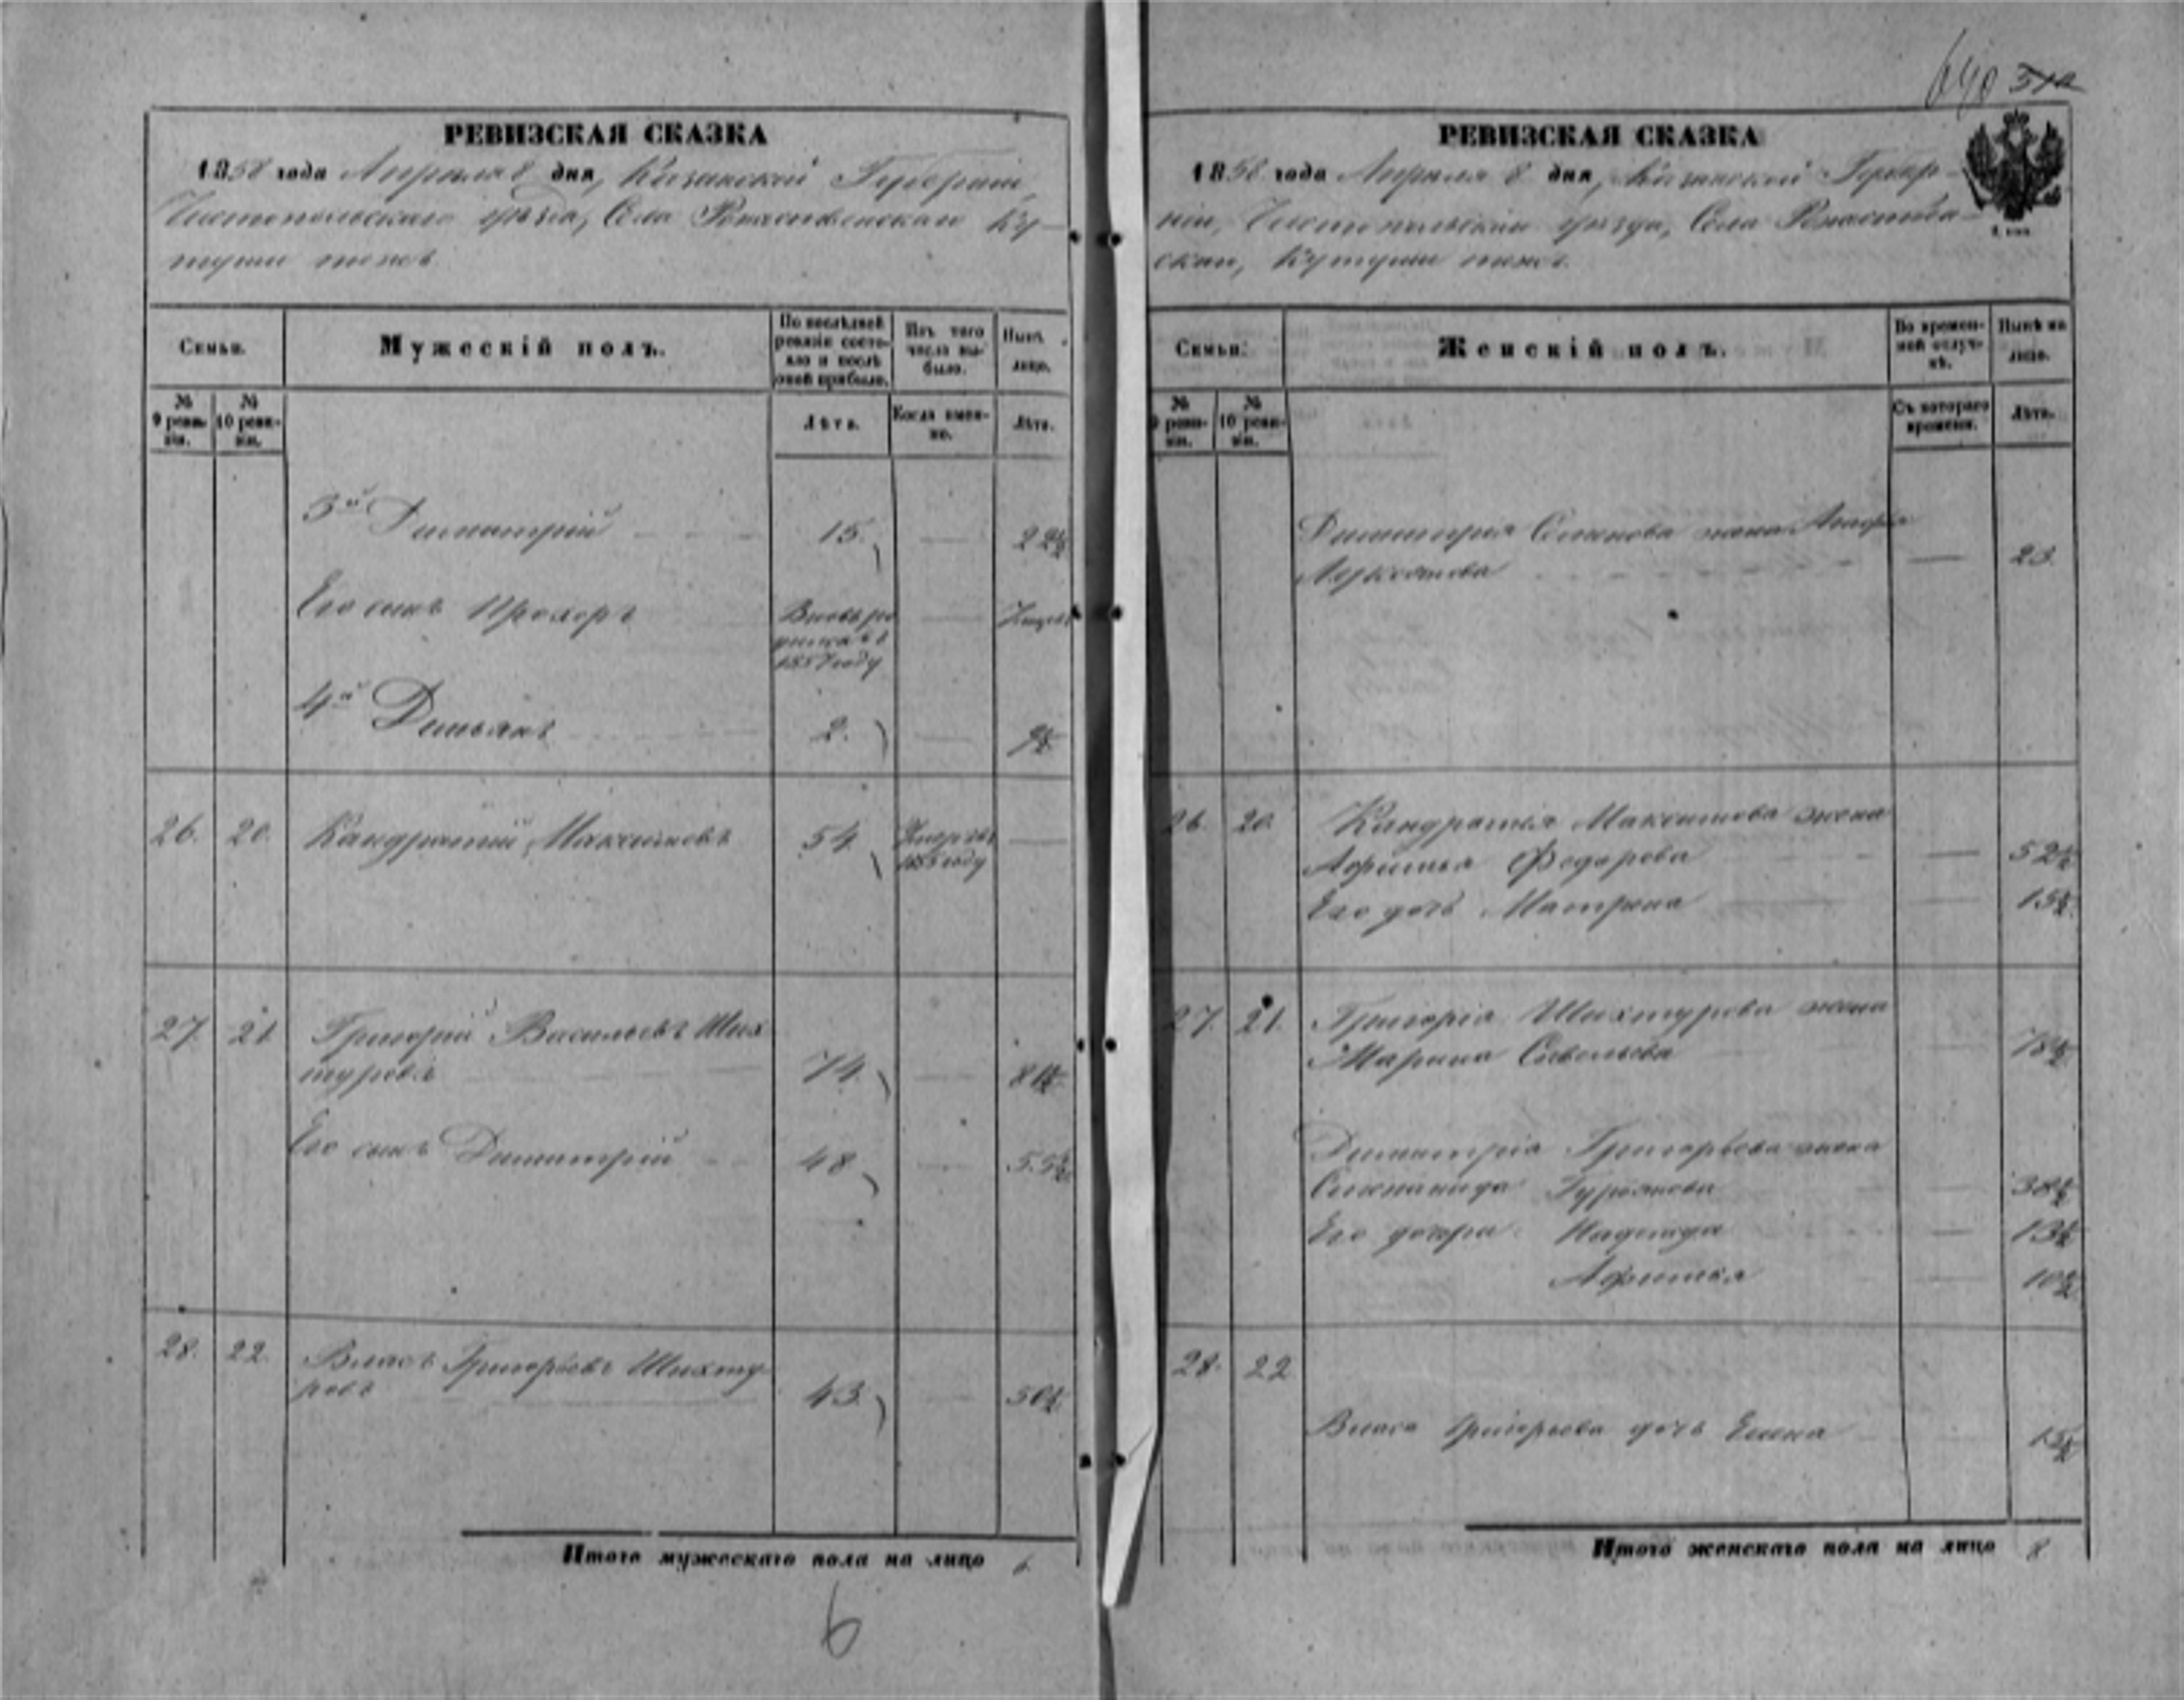 640 51а
РЕВИЗСКАЯ СКАЗКА
1858 года Апреля 8 дня, Казанской Губерніи,
Чистопольскаго уѣзда, Села Рождественскаго Ку-
туши тожъ
Семьи.
Мужескій полъ.
По послѣдней ревизіи состояло и послѣ оной прибыло.
Изъ того числа выбыло.
Нынѣ на лицо.
№ 9 ревизіи.
№ 10 ревизіи.
Лѣта.
Когда именно.
Лѣта.
3й Димитрій 15. 22½
Его сынъ Прохоръ Вновь ро
1857 году
4й Демьянъ 2. 9½
26. 20. Кандратій Максимовъ 54. Умеръ въ
году
27. 21 Григорій Васильевъ Ших
туровъ 74. 81½
Его сынъ Димитрій 48 55½
28. 22. Власъ Григорьевъ Шихту-
ровъ 43. 50½
Итого мужескаго пола на лицо 6.
6
РЕВИЗСКАЯ СКАЗКА
1858 года Апреля 8 дня, Казанской Губер-
ніи, Чистопольскаго уѣзда, Села Рождестве-
скаго, Кутуши тожъ.
Семьи.
Женскій полъ.
Во временной отлучкѣ.
Нынѣ на лицо.
№ 9 ревизіи.
№ 10 ревизіи.
Съ котораго времени.
Лѣта.
Димитрія жена
23.
26. 20. Кандратья Максимова жена
Афимья Федорова 52½
Его дочь Матрена 15½
27. 21. Григорія Шихтурова жена
Марина Савельева 78½
Димитрія Григорьева жена
Степанида Гурьянова 38½
Его дочери Надежда 13½
Афимья 10½
28. 22
Власа Григорьева дочь Елена 15½
Итого женскаго пола на лицо 8